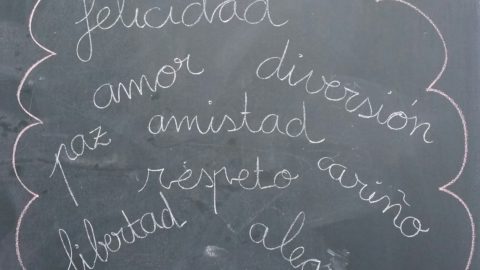 felicidad
amor diversión
paz amistad
respeto cariño
libertad